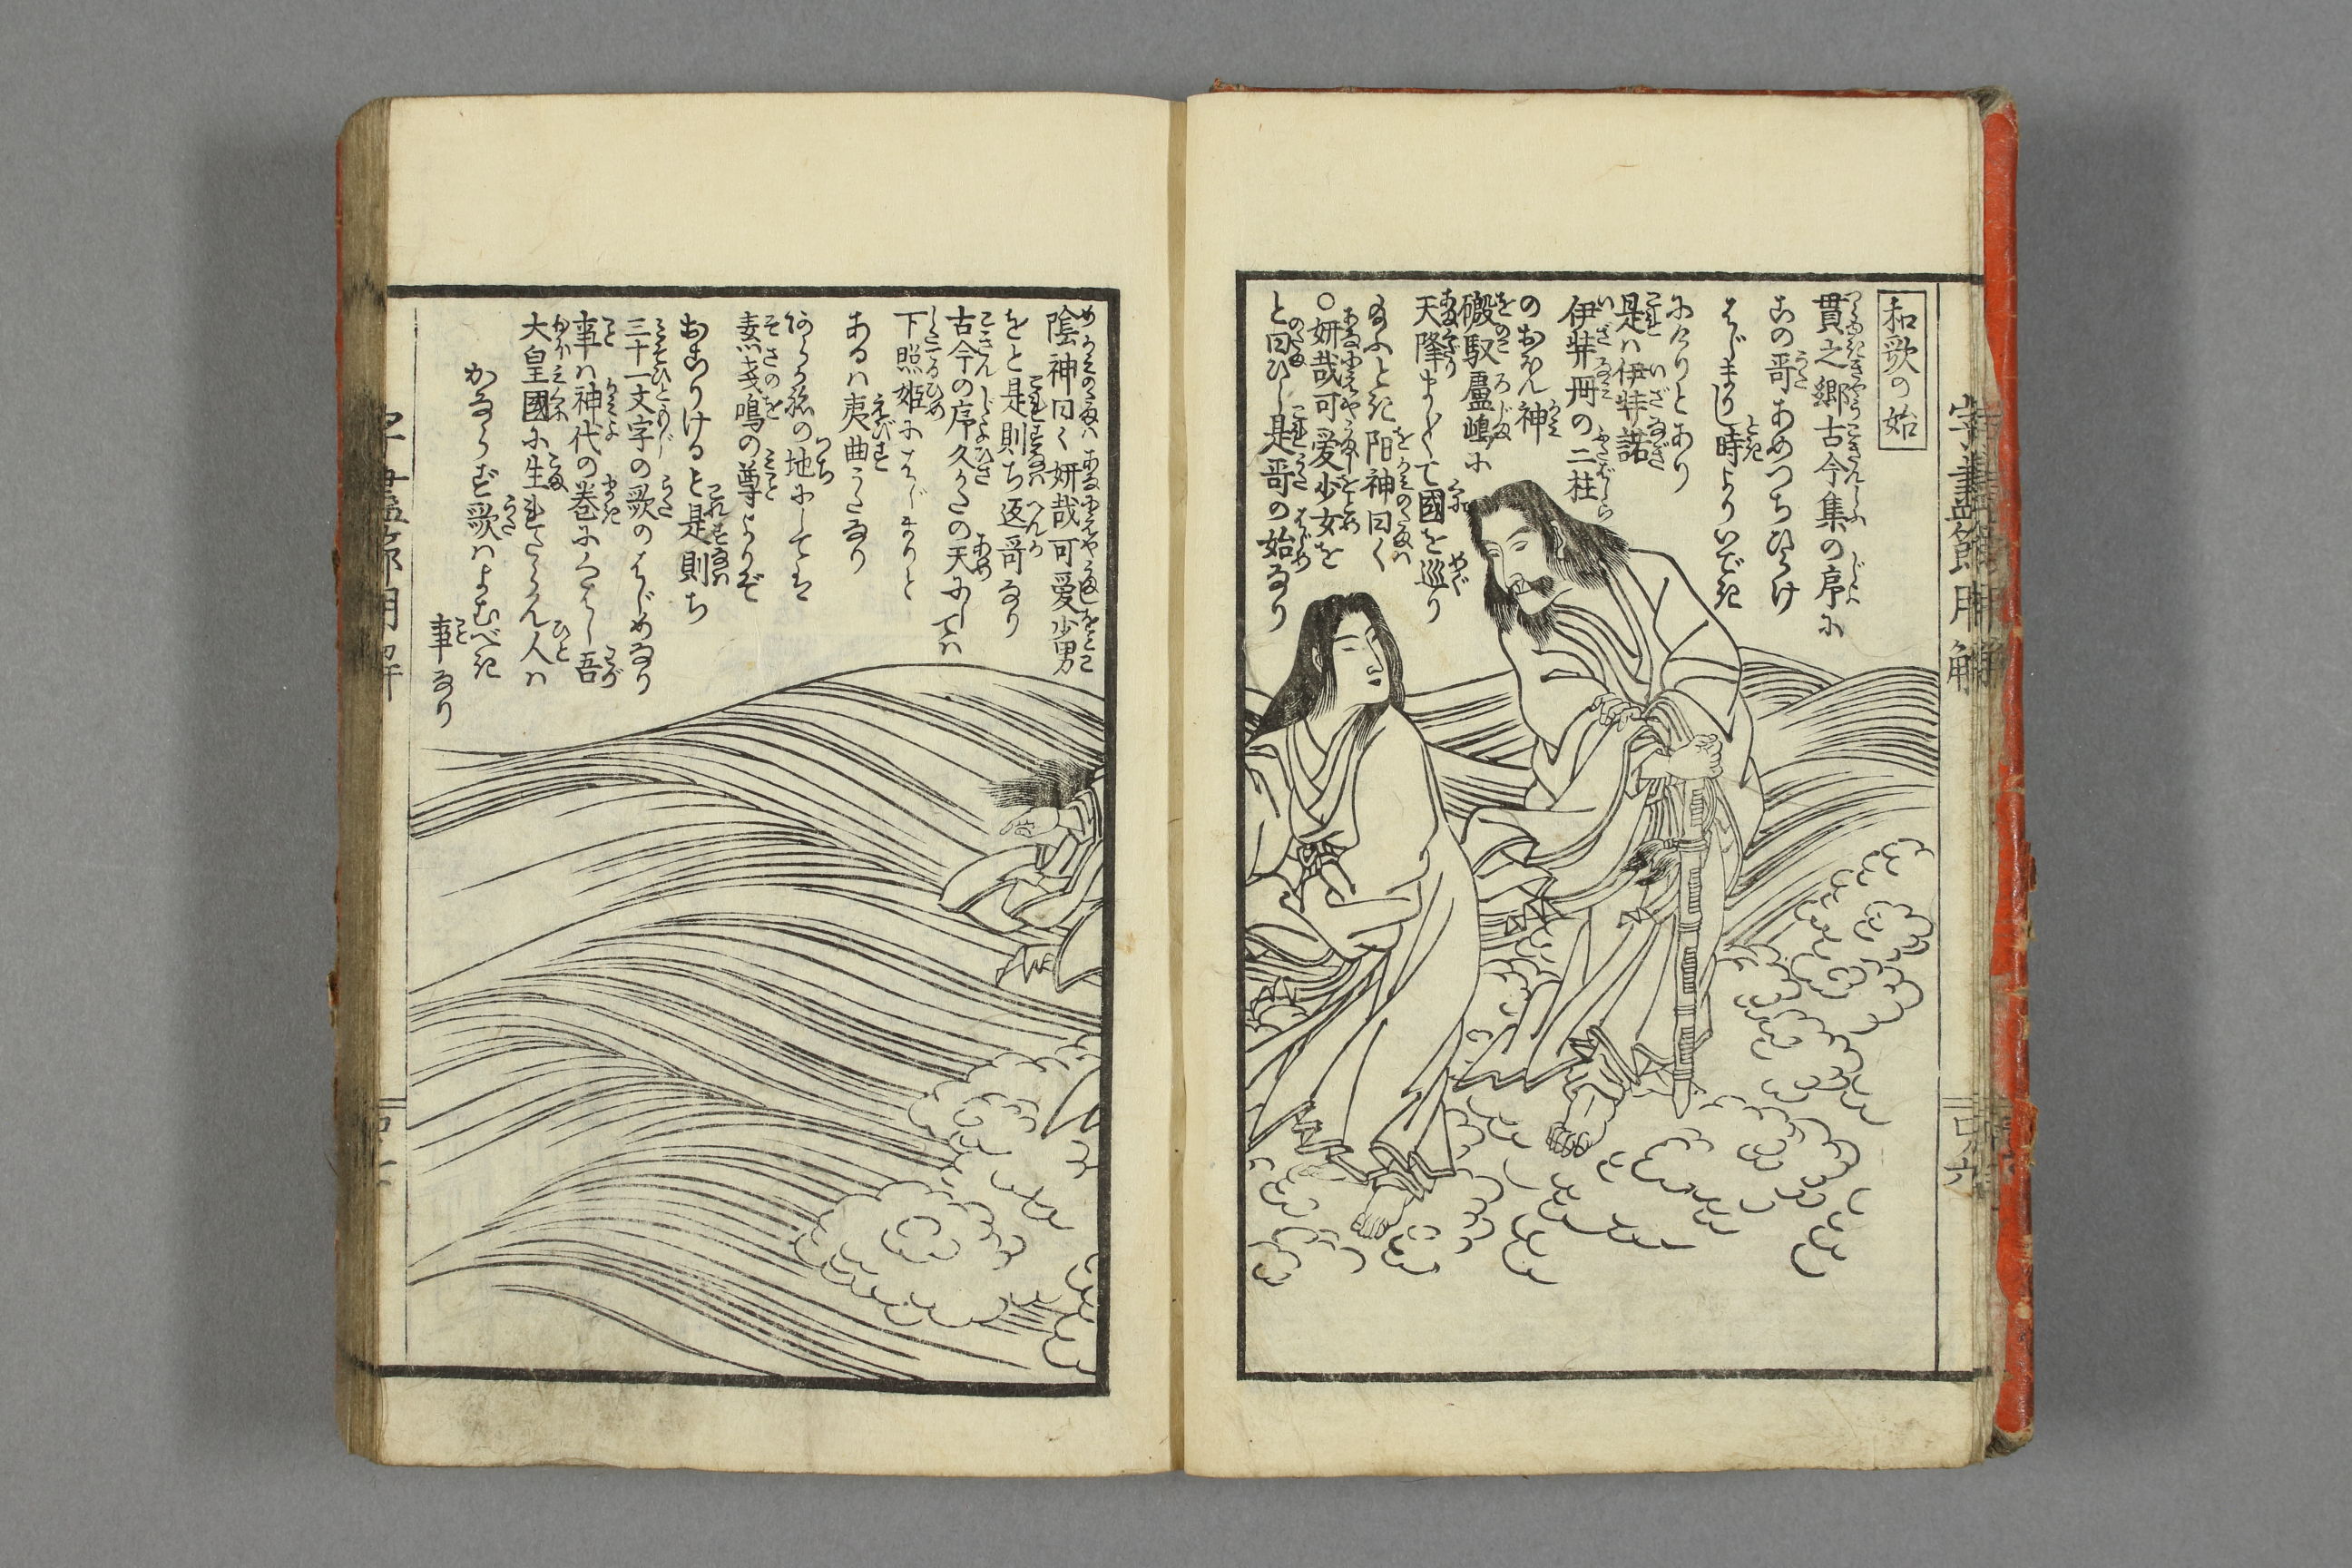 和歌の始
貫之郷古今集の序に
この哥あめつちひらけ
はじまりし時よりいでき
にけりとあり
是ハ伊弉諾
伊弉冊の二柱
のおほん神
磤馭盧嶋に
天降まし〳〵て國を巡り
給ふとき陽神曰く
○妍哉可愛少女を
と曰ひし是哥の始なり
陰神曰く妍哉可愛少男
をと是則ち返哥なり
古今の序久かたの天にしてハ
下照姫にはじまりと
あるハ夷曲うたなり
あらかねの地にしてハ
素戔嗚の尊よりぞ
おこりけると是則ち
三十一文字の歌のはじめなり
事ハ神代の巻にくはし吾
大皇國に生れたらん人ハ
かならず歌ハよむべき
事なり